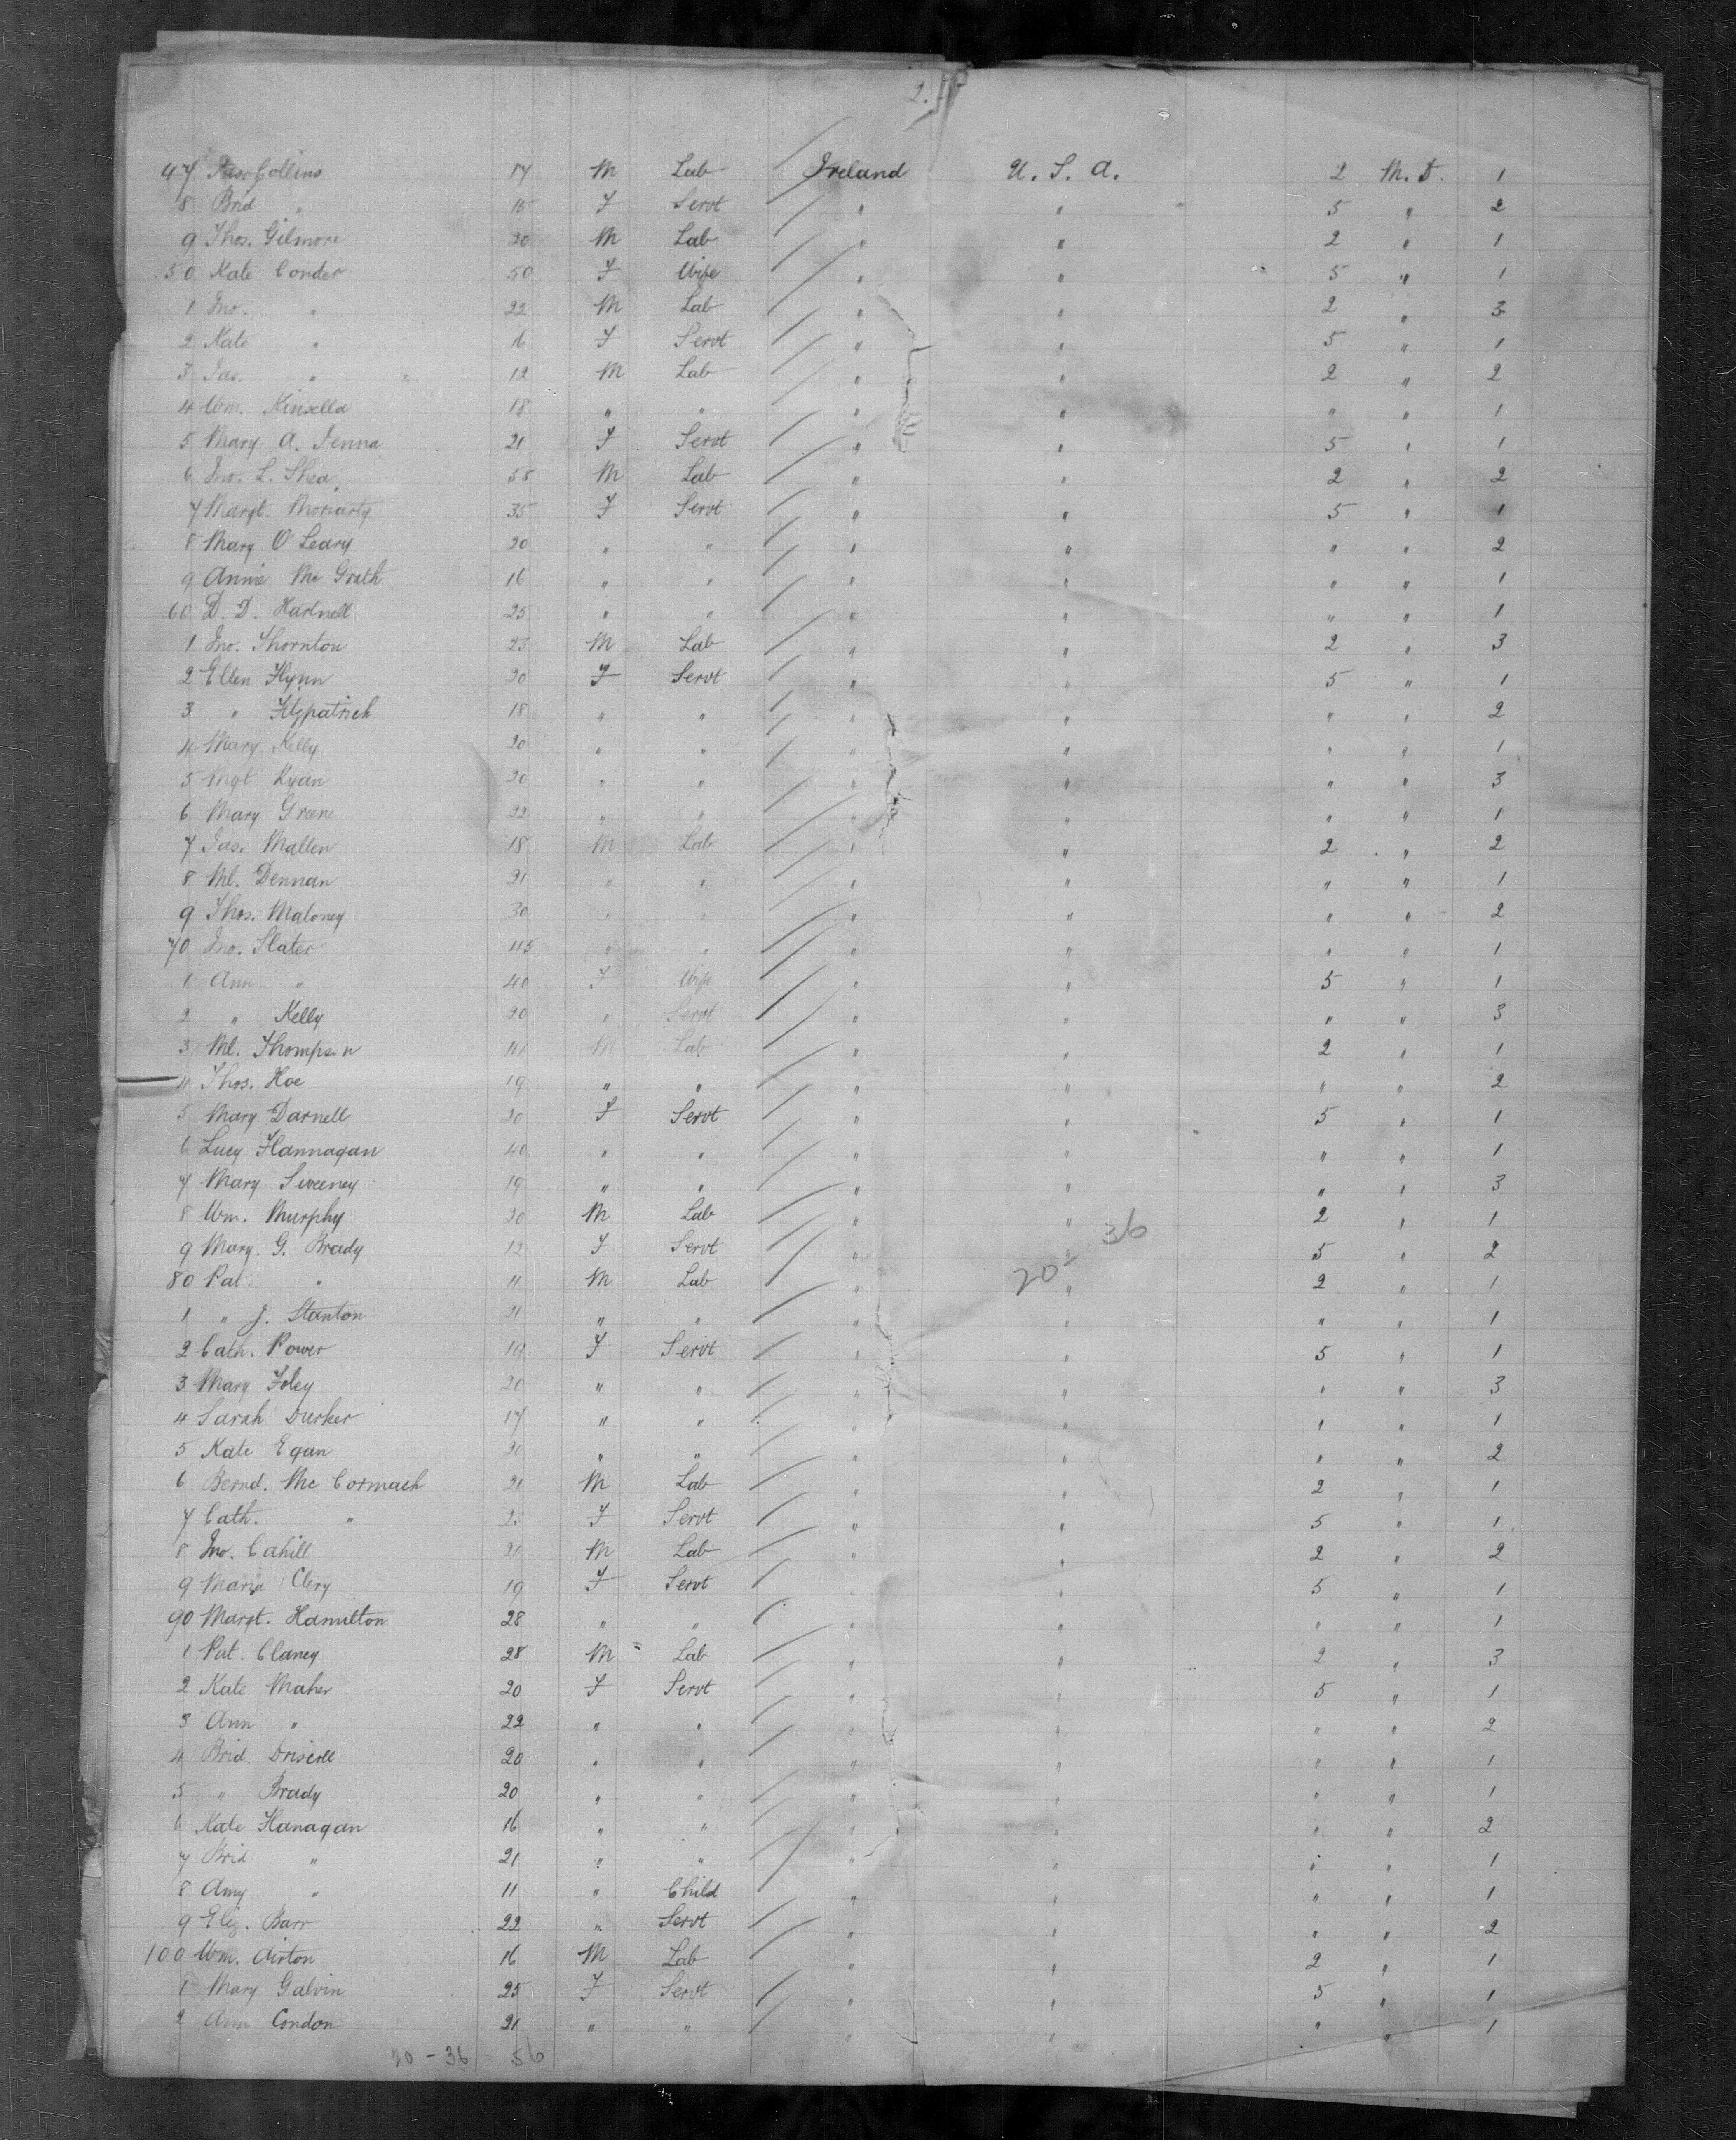 2.
47 Jas Collins 17 M Lab Ireland U. S. A. 2 M. D. 1
8 Brid " 15 F Servt " " 5 " 2
9 Thos. Gilmore 20 M Lab " " 2 " 1
50 Kate Conder 50 F Wife " " 5 " 1
1 Jno. " 22 M Lab " " 2 " 3
2 Kate " 16 F Servt " " 5 " 1
3 Jas. " 12 M Lab " " 2 " 2
4 Wm. Kinsella 18 " " " " " " 1
5 Mary A. Fenna 21 F Servt " " 5 " 1
6 Jno. L. Shea 58 M Lab " " 2 " 2
7 Margt. Moriarty 35 F Servt " " 5 " 1
8 Mary O'Leary 20 " " " " " " 2
9 Annie Mc Grath 16 " " " " " " 1
60 D. D. Hartnell 25 " " " " " " 1
1 Jno. Thornton 23 M Lab " " 2 " 3
2 Ellen Flynn 20 F Servt " " 5 " 1
3 " Fitzpatrick 18 " " " " " " 2
4 Mary Kelly 20 " " " " " " 1
5 Mgt Ryan 20 " " " " " " 3
6 Mary Greene 22 " " " " " " 1
7 Jas. Mallen 18 M Lab " " 2 " 2
8 Ml. Dennan 21 " " " " " " 1
9 Thos. Maloney 30 " " " " " " 2
70 Jno. Slater 45 " " " " " " 1
1 Ann " 40 F Wife " " 5 " 1
2 " Kelly 20 " Servt " " " " 3
3 Ml. Thompson M Lab " " 2 " 1
4 Thos. Hoe 19 " " " " " " 2
5 Mary Darnell 20 F Servt " " 5 " 1
6 Lucy Flannagan 40 " " " " " " 1
7 Mary Sweeney 19 " " " " " " 3
8 Wm. Murphy 20 M Lab " " 2 " 1
36
9 Mary. G. Brady 12 F Servt " " 5 " 2
80 Pat. " 11 M Lab " 20 " 2 " 1
1 " J. Stanton 21 " " " " " " 1
2 Cath. Power 19 F Servt " " 5 " 1
3 Mary Foley 20 " " " " " " 3
4 Sarah Durker 17 " " " " " " 1
5 Kate Egan 20 " " " " " " 2
6 Bernd. Mc Cormack 21 M Lab " " 2 " 1
7 Cath. " 23 F Servt " " 5 " 1
8 Jno. Cahill 21 M Lab " " 2 " 2
9 Maria Clery 19 F Servt " " 5 " 1
90 Margt. Hamilton 28 " " " " " " 1
1 Pat. Clancy 28 M Lab " " 2 " 3
2 Kate Maher 20 F Servt " " 5 " 1
3 Ann " 22 " " " " " " 2
4 Brid. Driscoll 20 " " " " " " 1
5 " Brady 20 " " " " " " 1
6 Kate Flanagan 16 " " " " " " 2
7 Brid " 21 " " " " " " 1
8 Amy " 11 " Child " " " " 1
9 Eliz. Barr 22 " Servt " " " " 2
100 Wm. Airton 16 M Lab " " 2 " 1
1 Mary Galvin 25 F Servt " " 5 " 1
2 Ann Condon 21 " " " " " " 1
20 - 36 56